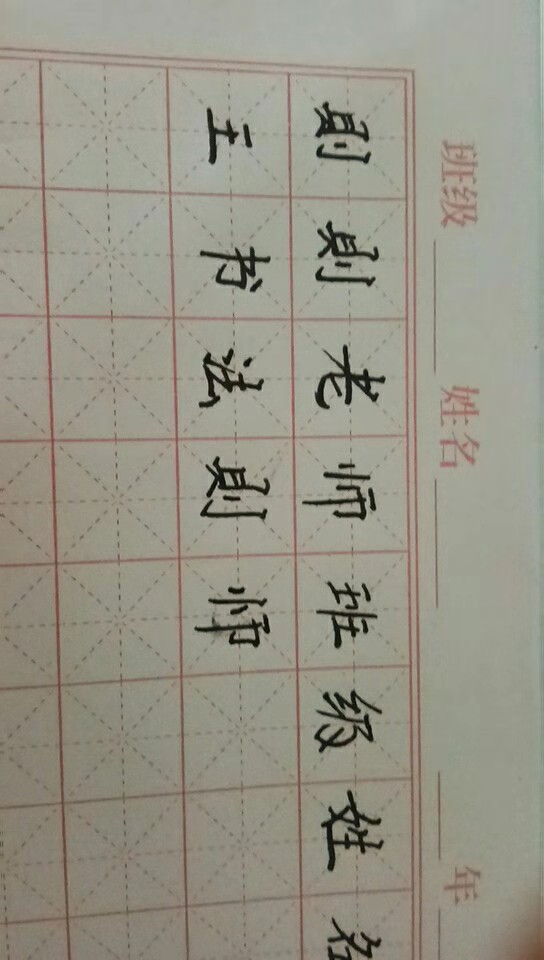 班级 姓名 年
則則老师班级姓名
王书法則师